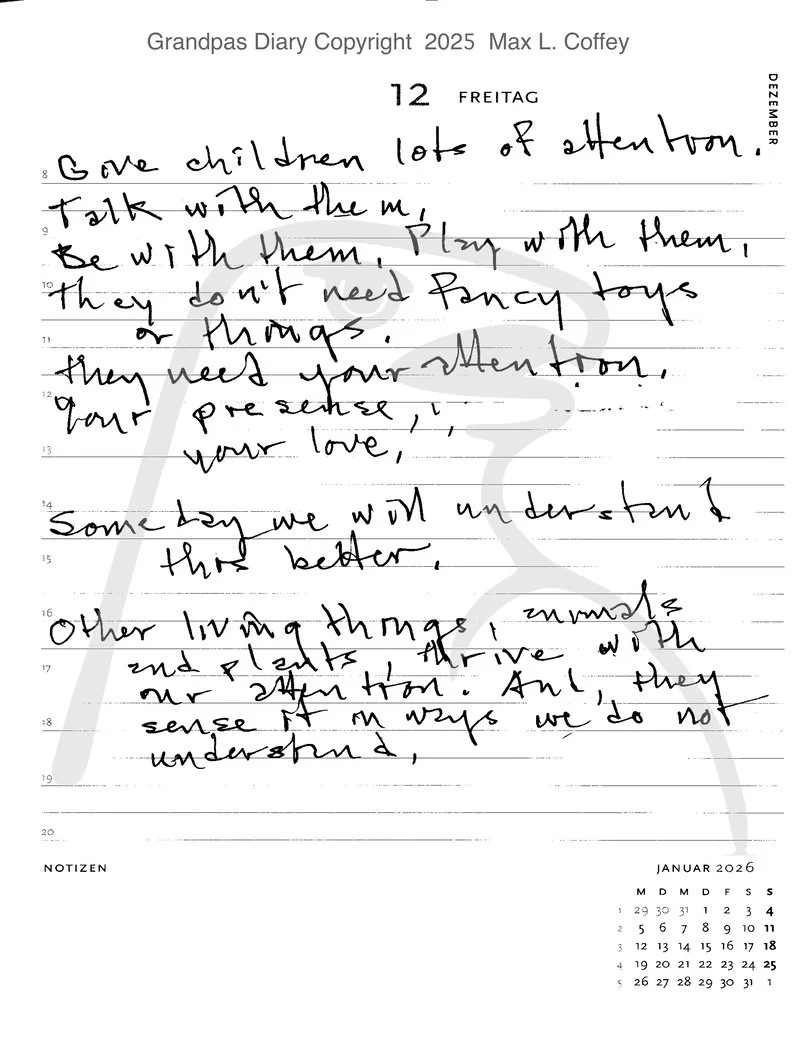 Grandpas Diary Copyright 2025 Max L. Coffey
12 FREITAG
DEZEMBER
8 Give children lots of attention.
Talk with them,
9
Be with them, Play with them,
10 They don't need fancy toys
or things.
11
they need your attention,
12
your presense,,,
13 your love,
14
Someday we will understand
15 this better.
16
Other living things, animals
and plants, thrive with
17
our attention. And, they
18 sense it in ways we do not
understand,
19
20
NOTIZEN
JANUAR 2026
M D M D F S S
1 29 30 31 1 2 3 4
2 5 6 7 8 9 10 11
3 12 13 14 15 16 17 18
4 19 20 21 22 23 24 25
5 26 27 28 29 30 31 1